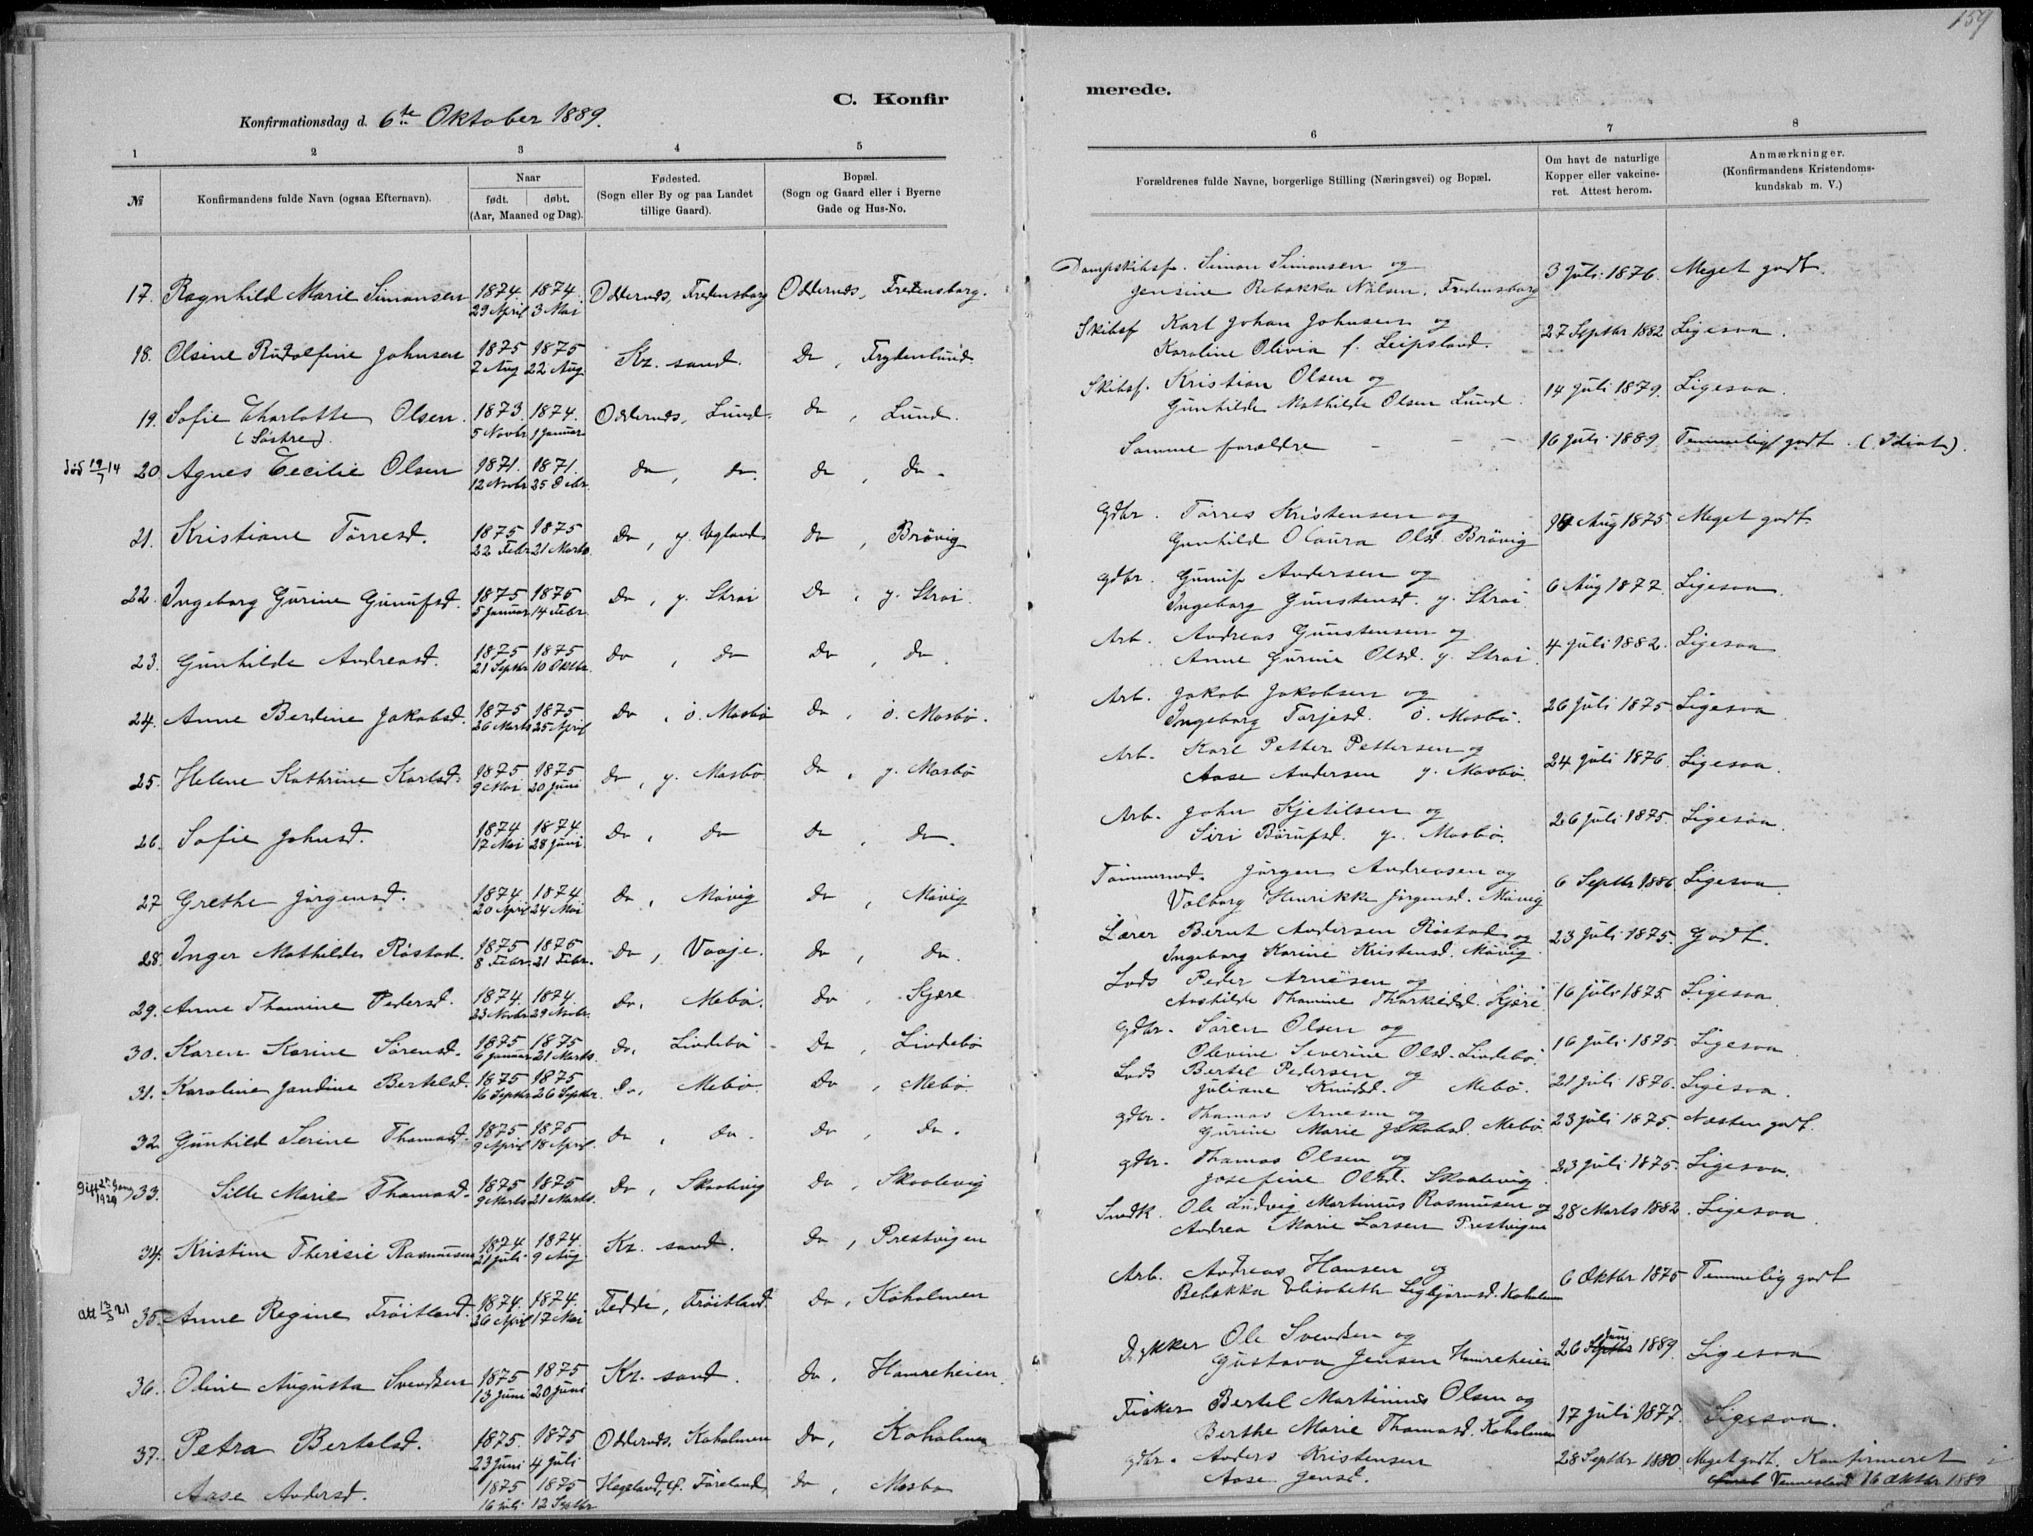 159
C. Konfir
merede.
Konfirmationsdag d. 6te Oktober 1889.
1 2 3 4 5 6 7 8
№
Konfirmandens fulde Navn (ogsaa Efternavn).
Naar
født. døbt.
(Aar, Maaned og Dag).
Fødested.
(Sogn eller By og paa Landet
tillige Gaard).
Bopæl.
(Sogn og Gaard eller i Byerne
Gade og Hus-No.
Forældrenes fulde Navne, borgerlige Stilling (Næringsvei) og Bopæl.
Om havt de naturlige
Kopper eller vakcine-
ret. Attest herom.
Anmærkninger.
(Konfirmandens Kristendoms-
kundskab m. V.)
17. Ragnhild Marie Simonsen 1874. 29 April 1874. 3 Mai Oddernes, Fredensborg Oddernes, Fredensborg.
Dampskibsf. Simon Simonsen og
Jensine Rebekka Nilsen. Fredensborg 3 Juli 1876. Meget godt.
18. Olsine Rudolfine Johnsen 1875 2 Aug 1875 22 Aug Kr. sand. Do, Frydenlund
Skibsf Karl Johan Johnsen og
Karoline Olivia f. Leipsland. 27 Septbr 1882 Ligesaa.
19. Sofie Charlotte Olsen. 1873. 5 Novbr 1874. 1 Januar Oddernes, Lund. do, Lund.
(Søstre)
Skibsf. Kristian Olsen og
Gunhilde Mathilde Olsen Lund. 14 Juli 1879. Ligesaa
død 19/7 14 20. Agnes Cecilie Olsen 1871. 12 Novbr 1871. 25 Debr. do, do. do, do.
Samme forældre - - - 16 Juli 1889 Temmelig godt. (Idiot).
21. Kristiane Tørresd. 1875 22 Febr 1875 21 Marts Do, y. Vgland do, Brøvig
Gdbr. Tørres Kristensen og
Gunhild Olaura Olsd. Brøvig Aug 1875. Meget godt
22. Ingeborg Gurine Gunufsd. 1875 5 Januar 1875 14 Febr. Do, y. Strai Do, y. Strai.
gdbr. Gunuf Andersen og
Ingeborg Gunstensd. y. Strai. 6 Aug 1877. Ligesaa.
23. Gunhilde Andreasd. 1875 21 Septbr 1875 10 Oktbr. do, do Do, do.
Arb. Andreas Gunstensen og
Anne Gurine Olsd. y. Strai. 4 Juli 1882. Ligesaa
24. Anne Berdine Jakobsd. 1875 26 Marts 1875 25 April do, ö. Mosbø Do, ö. Mosbø.
Arb. Jakob Jakobsen og
Ingeborg Torjesd. ö. Mosbø. 26 Juli 1875. Ligesaa
25. Helene Kathrine Karlsd. 1875 9 Mai 1875 20 Juni do, y. Mosbø Do, y. Mosbø
Arb. Karl Petter Pettersen og
Aase Andersen y. Mosbø. 24 Juli 1876. Ligesaa.
26. Sofie Johnsd. 1874 17 Mai 1874. 28 Juni. do, do do, do.
Arb. John Kjetilsen og
Siri Börufsd. y. Mosbø. 26 Juli 1875. Ligesaa.
27 Grethe Jørgensd. 1874. 20 April 1874 24 Mai do, Møvig do, Møvig
Tømmermd. Jørgen Andreasen og
Valborg Henrikke Jørgensd. Møvig 6 Septbr 1886 Ligesaa
28. Inger Mathilde Røstad. 1875 8 Febr. 1875 21 Febr. do, Vaaje. do, do.
Lærer Bernt Andersen Røstad og
Ingeborg Karine Kristensd. Møvig 23 Juli 1875. Godt.
29. Anne Thomine Pedersd. 1874. 23 Novbr 1874. 29 Novbr. do, Mebø. do, Kjære
Lods Peder Arnesen og
Aashilde Thomine Thorkildsd. Kjære 16 Juli 1875. Ligesaa
30. Karen Karine Sørensd. 1875 6 Januar 1875 21 Marts. do, Lindebø Do, Lindebø
gdbr. Søren Olsen og
Olevine Severine Olsd. Lindebø. 16 Juli 1875. Ligesaa
31. Karoline Jandine Bertelsd. 1875 16 Septbr 1875 26 Septbr. do, Mebø. Do, Mebø
Lods Bertel Pedersen og
Juliane Knudsd. Mebø. 21 Juli 1876. Ligesaa.
32. Gunhild Serine Thomasd. 1875 9 April 1875 18 April. do, do. do, do.
gdbr. Thomas Arnesen og
Gurine Marie Jakobsd. Mebø 23 Juli 1875. Næsten godt.
gift 2. gang 1929 33. Sille Marie Thomasd. 1875 9 Marts 1875 21 Marts. Do, Skaalevig Do, Skaalevig
gdbr. Thomas Olsen og
Josefine Olsd. Skaalevig. 23 Juli 1875. Ligesaa.
34. Kristine Theresie Rasmussen 1874. 21 Juli 1874. 9 Aug Kr. sand. Do, Prestvigen
Snedk. Ole Ludvig Martinius Rasmussen og
Andrea Marie Larsen Prestvigen 28 Marts 1882. Ligesaa.
Att 13/3 21 35. Anne Regine Trøitland. 1874. 26 April 1874. 17 Mai Fedde, Trøitland. Do, Koholmen
Arb. Andreas Hansen og
Rebekka Elisabeth Sigbjørnsd. Koholmen 6 Oktbr 1875 Temmelig godt
36. Oline Augusta Svendsen 1875 13 Juni 1875 20 Juni Kr. sand. do, Hamreheien.
Dykker Ole Svendsen og
Gustava Jensen Hamreheien 26 Septbr Juni 1889. Ligesaa
37. Petra Bertelsd. 1875. 23 Juni 1875 4 Juli Oddernes, Koholmen Do, Koholmen
Fisker Bertel Martinius Olsen og
Berthe Marie Thomasd. Koholmen 17 Juli 1877. Ligesaa.
Aase Andersd. 1875 16 Juli 1875 12 Septbr Hægeland, Føreland, do, Mosbø
gdbr. Anders Kristensen
Aase Jensd. 28 Septbr 1880. Meget godt. Konfirmeret i
Vennesland 16 Oktbr 1889